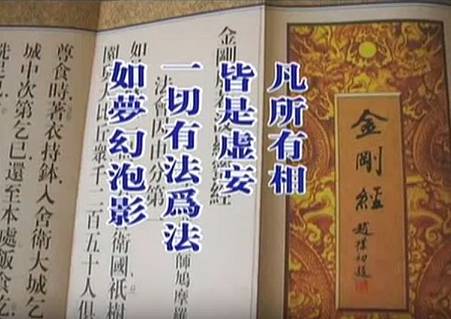 金剛經
趙樸初題
凡所有相
皆是虛妄
一切有法爲法
如夢幻泡影
金剛
經
師鳩摩羅
法會因由分第一
如
衛國祇樹
園
大比丘衆千二百五十人俱
尊食時著衣持鉢入舍衛大城乞
城中次第乞已還至本處飯食
洗